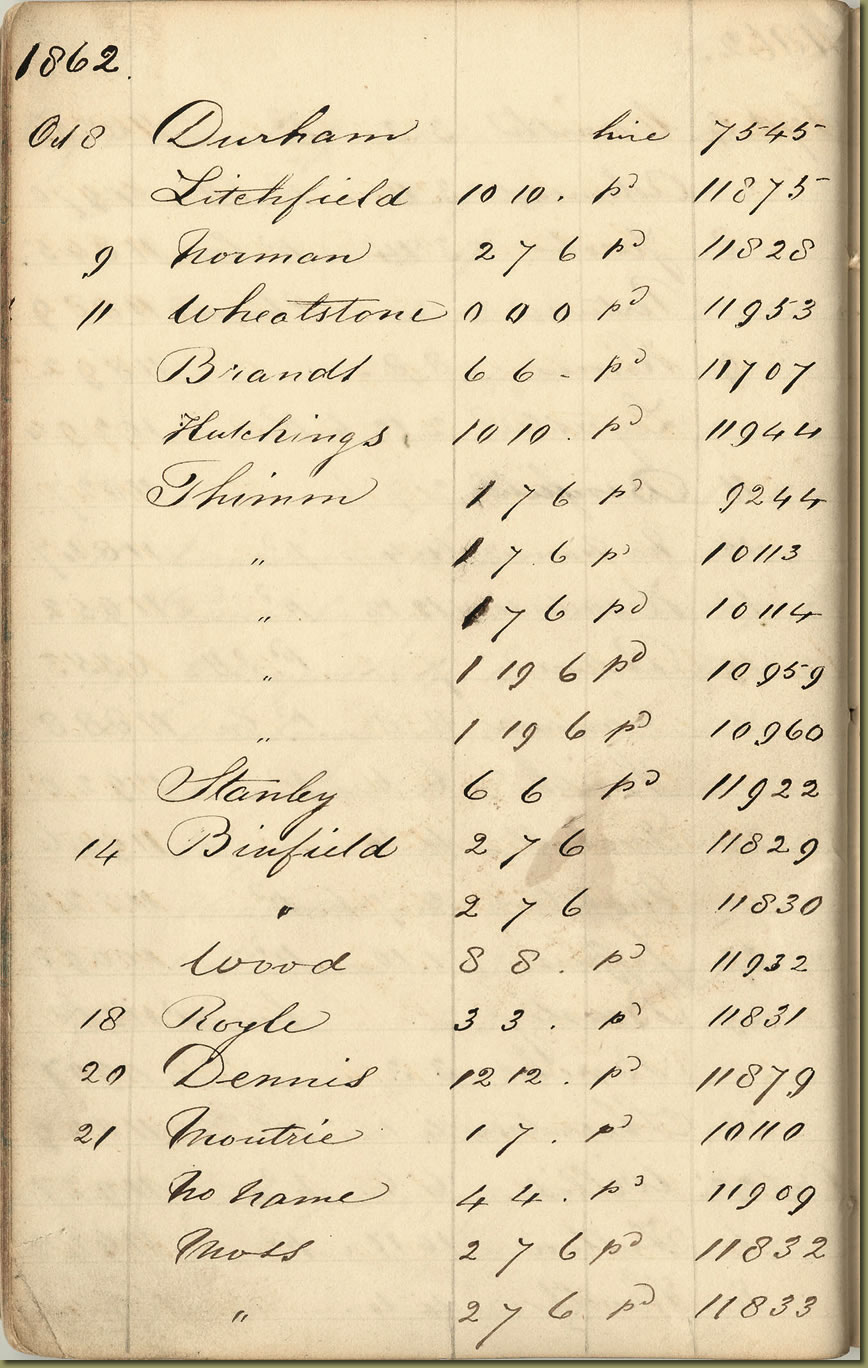 1862.
Oct 8 Durham hire 7545
Litchfield 10 10 . pd 11875
9 Norman 2 7 6 pd 11828
11 Wheatstone 0 0 0 pd 11953
Brandt 6 6 - pd 11707
Hutchings, 10 10 . pd 11944
Thimm 1 7 6 pd 9244
" 1 7 6 pd 10113
" 1 7 6 pd 10114
" 1 19 6 pd 10959
" 1 19 6 pd 10960
Stanley 6 6 pd 11922
14 Binfield 2 7 6 11829
" 2 7 6 11830
Wood 8 8 . pd 11932
18 Royle 3 3 . pd 11831
20 Dennis 12 12 . pd 11879
21 Moutrie 1 7 . pd 10110
No Name 4 4 . pd 11909
Moss 2 7 6 pd 11832
" 2 7 6 pd 11833